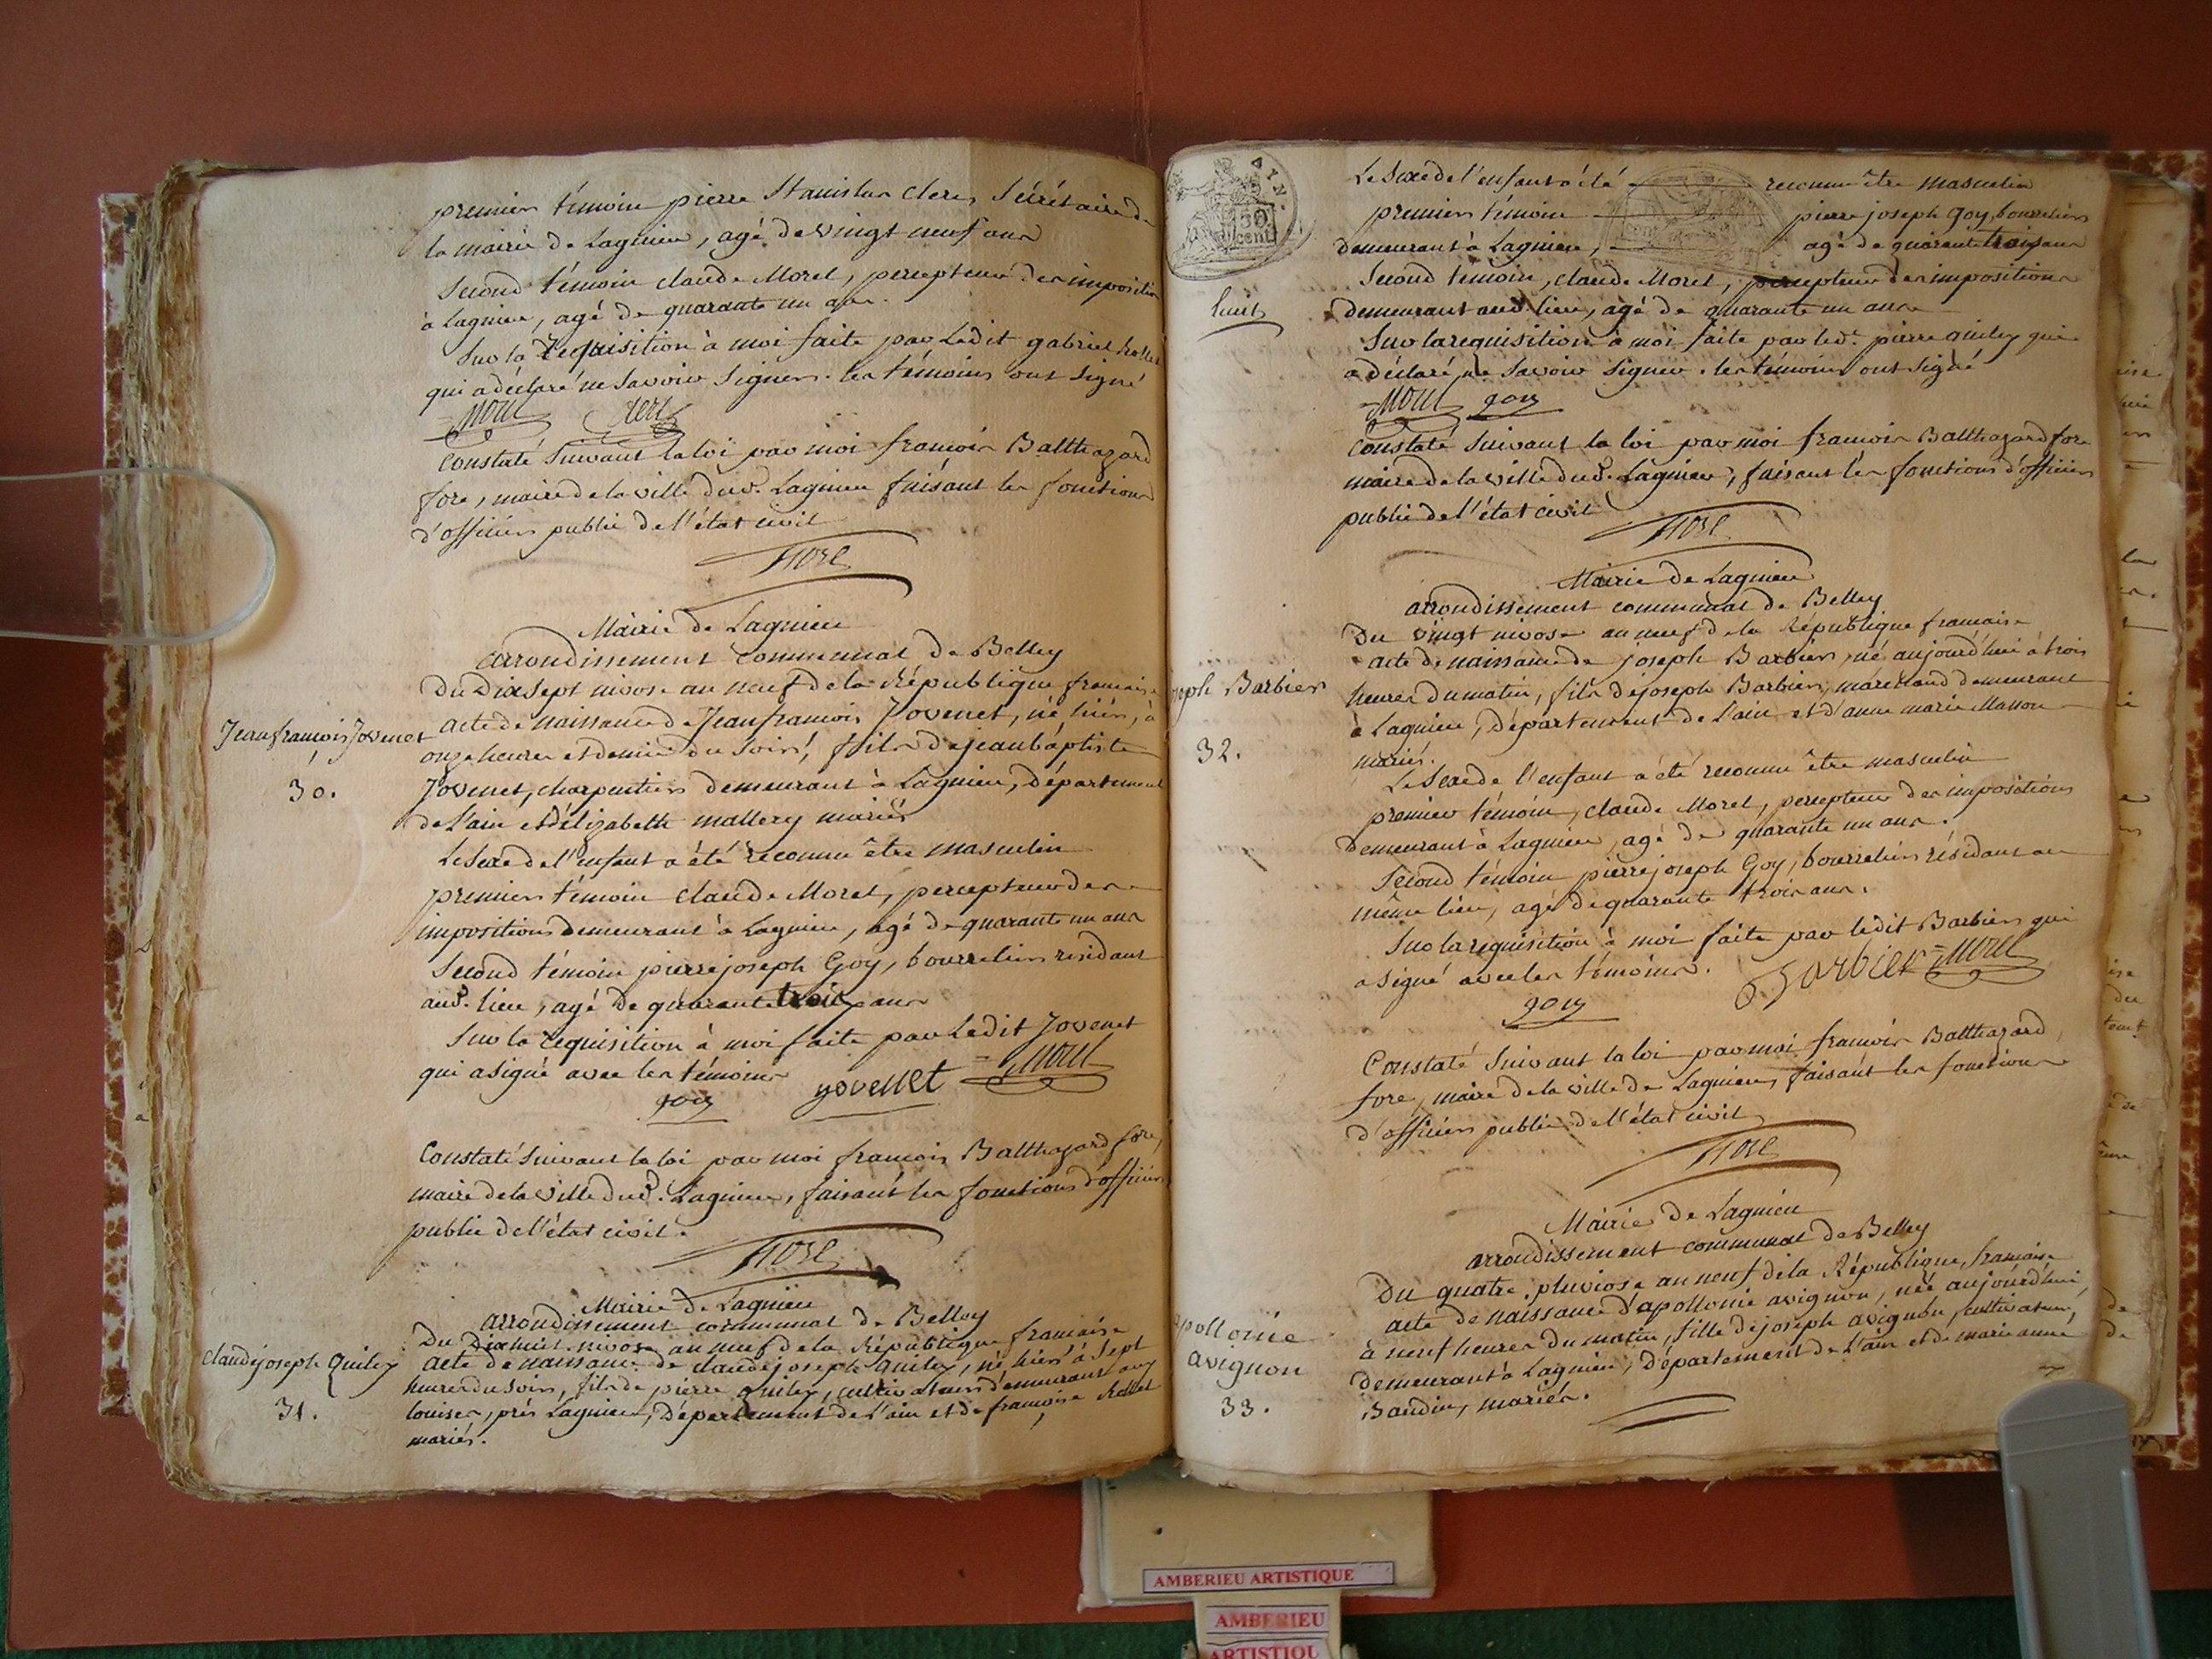 premier témoin pierre Stanislas Clerc, Sécrétaire de
la mairie de Lagnieu, agé de vingt neuf ans
Second témoin claude Morel, percepteur des imposition
à Lagnieu, agé de quarante un ans.
Sur la requisition à moi faite par Ledit gabriel
qui a déclaré ne Savoir Signer. les témoins ont Signé
Morel Clerc
Constaté Suivant la loi par moi francois Balthazard
fore, maire de la ville dud. Lagnieu faisant les fonctions
d'officier public de l'état civil
fore
Mairie de Lagnieu
arrondissement communal de Belley
Du Dix Sept nivose an neuf de la République francaise
Jean francois Jovenet
30.
acte de naissance de Jean francois Jovenet, né hier, à
onze heures et demie du Soir, fils de jean baptiste
Jovenet, charpentier demeurant à Lagnieu, département
de L'ain et d'élizabeth mallery mariés
Le Sexe de l'enfant a été reconnu être masculin
premier témoin claude Morel, percepteur des
impositions demeurant à Lagnieu, agé de quarante un ans
Second témoin pierre joseph Goy, bourrelier résidant
aud. lieu, agé de quarante trois ans
Sur la requisition à moi faite par Ledit Jovenet
qui a signé avec les témoins
goy yovenet Morel
Constaté Suivant la loi par moi francois Balthazard fore,
maire de la ville dud. Lagnieu, faisant les fonctions d'officier
public de l'état civil.
fore
Mairie de Lagnieu
arrondissement communal de Belley
Du Dix huit nivose an neuf de la République francaise
claude joseph Quiley
31.
acte de naissance de claude joseph Quiley, né hier à Sept
heures du Soir, fils de pierre quiley, cultivateur demeurant aux
louises, près Lagnieu, Département de L'ain et de francoise Rollet
mariés.
AIN.
50
cent
huit
Le Sexe de l'enfant a été reconnu être masculin
premier témoin pierre joseph Goy, bourrelier
demeurant à Lagnieu, agé de quarante trois ans
Second témoin, claude Morel, percepteur des impositions
demeurant aud. lieu, agé de quarante un ans
Sur la requisition à moi faite par led. pierre quiley qui
a déclaré ne Savoir Signer. les témoins ont Signé
Morel goy
Constaté Suivant la loi par moi francois Balthazard fore
maire de la ville dud. Lagnieu, faisant les fonctions d'officier
public de l'état civil
fore
Mairie de Lagnieu
arrondissement communal de Belley
Du vingt nivose an neuf de la République francaise
oseph Barbier
32.
acte de naissance de joseph Barbier, né aujourd'hui à trois
heures du matin, fils de joseph Barbier, marchand demeurant
à Lagnieu, département de L'ain et d'anne marie Masson
mariés.
Le Sexe de l'enfant a été reconnu être masculin
premier témoin, claude Morel, percepteur des impositions
demeurant à Lagnieu, agé de quarante un ans.
Second témoin pierre joseph Goy, bourrelier résidant au
même lieu, agé de quarante trois ans.
Sur la requisition à moi faite par ledit Barbier qui
a signé avec les témoins.
Barbier Morel
goy
Constaté Suivant la loi par moi francois Balthazard
fore, maire de la ville de Lagnieu, faisant les fonctions
d'officier public de l'état civil
fore
Mairie de Lagnieu
arrondissement communal de Belley
Du quatre pluviose an neuf de la République francaise
pollonie
avignon
33.
acte de naissance d'apollonie avignon, née aujourd'hui,
à neuf heures du matin, fille de joseph avignon, cultivateur,
demeurant à Lagnieu, Département de L'ain et de marie anne
Baudin, mariés.
AMBERIEU ARTISTIQUE
AMBERIEU
ARTISTIQU